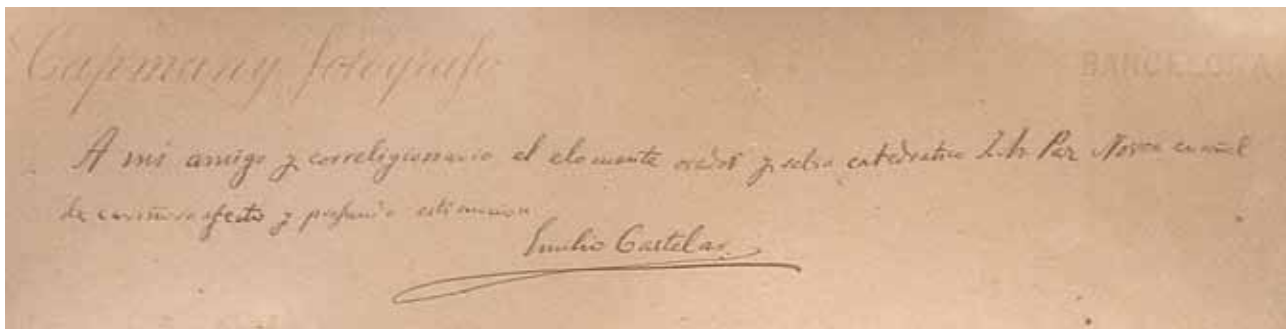 Capmany fotógrafo
BARCELONA
A mi amigo y correligionario el elocuente orador y sabio catedratico Paz Novoa en señal
de cariñoso afecto y profunda estimacion
Emilio Castelar